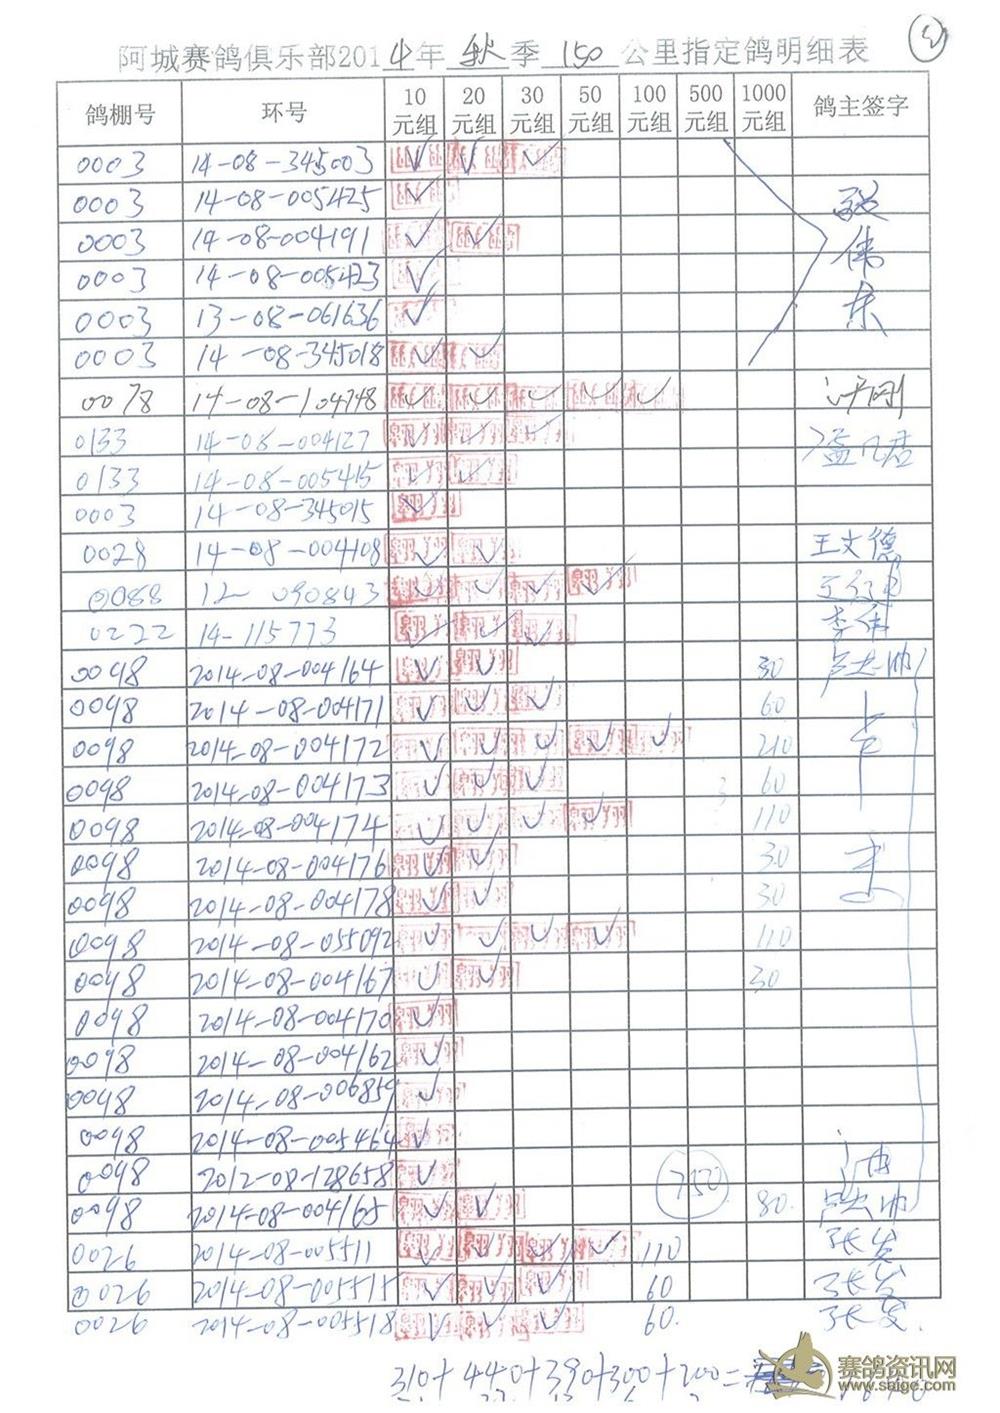 2
阿城赛鸽俱乐部2014年 秋 季 150 公里指定鸽明细表
鸽棚号 环号 10元组 20元组 30元组 50元组 100元组 500元组 1000元组 鸽主签字
0003 14-08-345003 ✓ ✓ ✓
0003 14-08-005425 ✓
0003 14-08-004191 ✓ ✓
0003 14-08-005423 ✓
0003 13-08-061636 ✓
0003 14-08-345018 ✓ ✓
张伟东
0078 14-08-104748 ✓ ✓ ✓ ✓ ✓
0133 14-08-004127 ✓ ✓ ✓ 孟凡君
0133 14-08-005415 ✓ ✓
0003 14-08-345015 ✓
0028 14-08-004108 ✓ ✓ 王文德
0088 12 090843 ✓ ✓ ✓ ✓
0222 14-115773 ✓ ✓ ✓ 李伟
0098 2014-08-004164 ✓ ✓ 30
0098 2014-08-004171 ✓ ✓ ✓ 60
0098 2014-08-004172 ✓ ✓ ✓ ✓ ✓ 210
0098 2014-08-004173 ✓ ✓ ✓ 3 60
0098 2014-08-004174 ✓ ✓ ✓ ✓ 110
0098 2014-08-004176 ✓ ✓ 30
0098 2014-08-004178 ✓ ✓ 30
0098 2014-08-055092 ✓ ✓ ✓ ✓ 110
0098 2014-08-004167 ✓ ✓ 30
0098 2014-08-004170 ✓
0098 2014-08-004162 ✓
0098 2014-08-006859 ✓
0098 2014-08-005464 ✓
0098 2012-08-128658 ✓ 750
0098 2014-08-004165 ✓ ✓ 80.
0026 2014-08-005511 ✓ ✓ ✓ ✓ 110 张发
0026 2014-08-005515 ✓ ✓ ✓ 60 张发
0026 2014-08-005518 ✓ ✓ ✓ 60. 张发
310+440+390+300+200=
赛鸽资讯网
www.saige.com